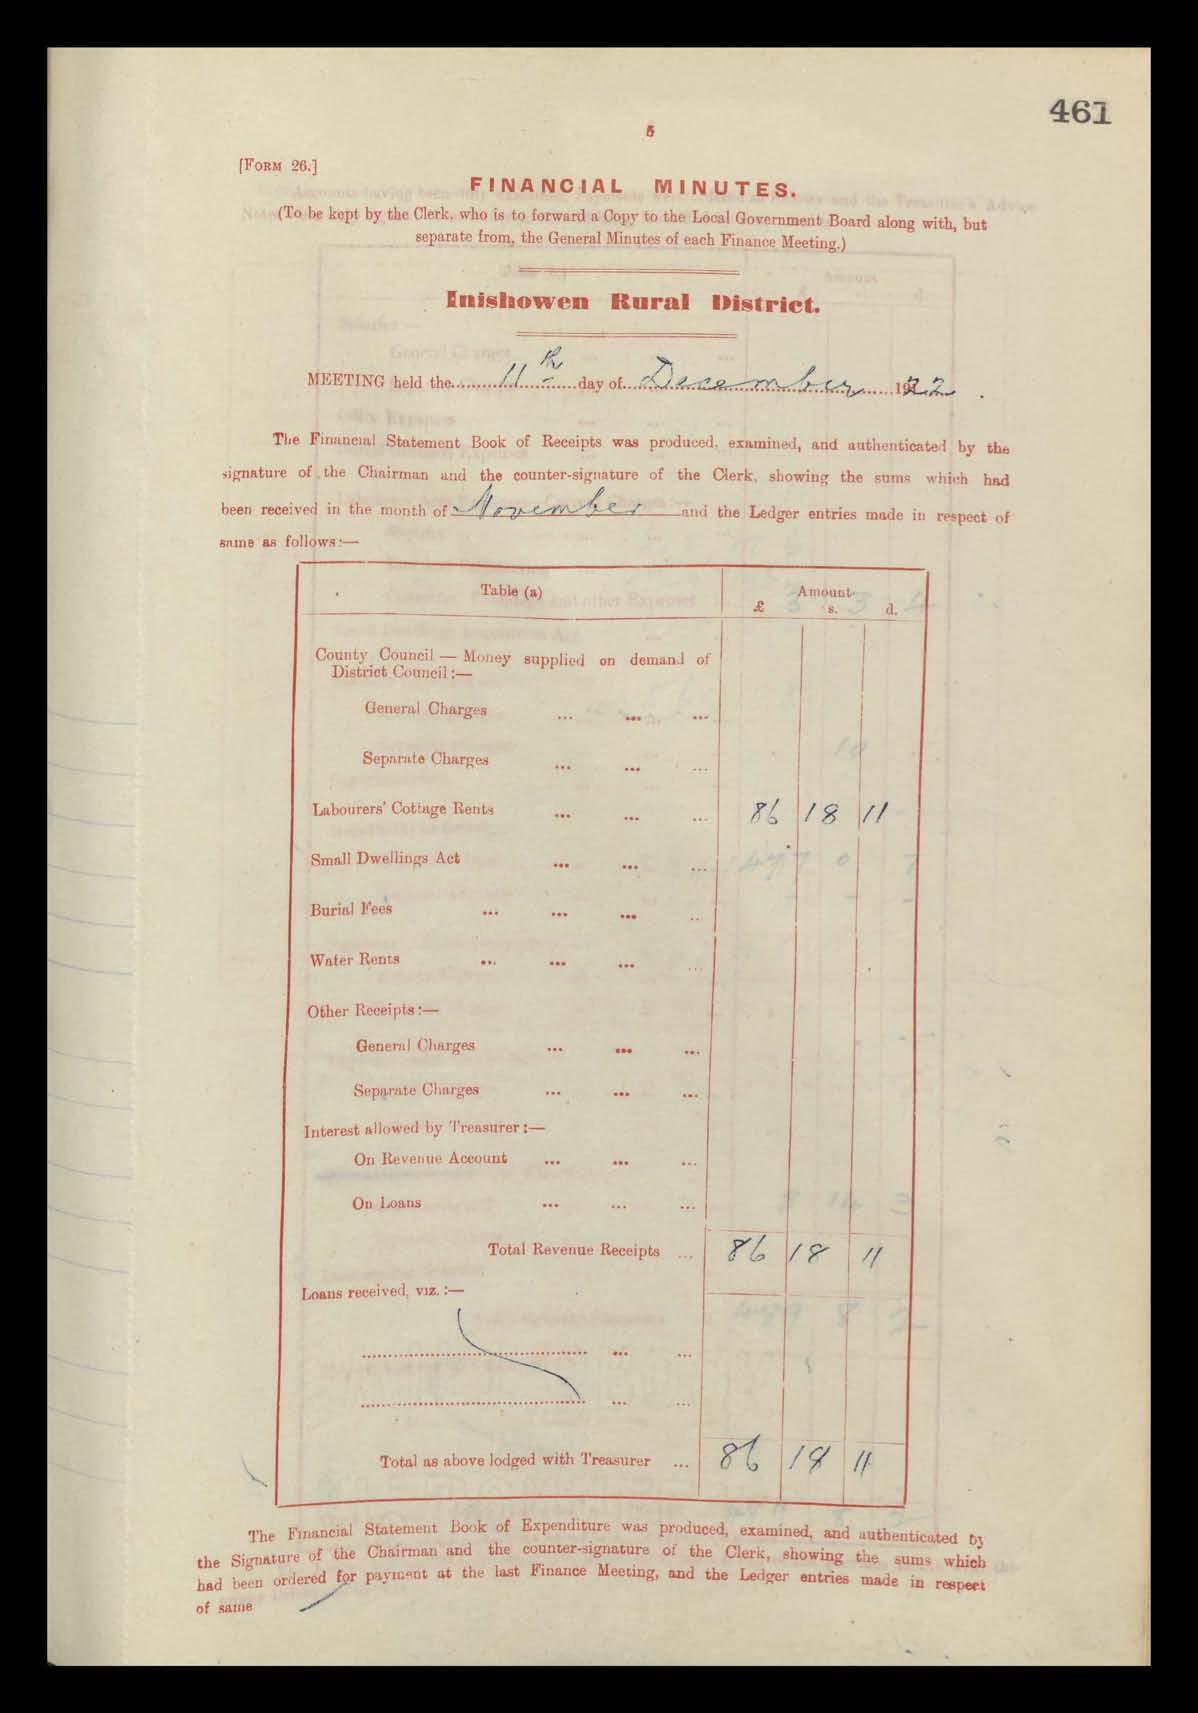 461
5
[FORM 26.]
FINANCIAL MINUTES.
(To be kept by the Clerk, who is to forward a Copy to the Local Government Board along with, but
separate from, the General Minutes of each Finance Meeting.)
Inishowen Rural District.
MEETING held the 11th day of December 1922.
The Financial Statement Book of Receipts was produced, examined, and authenticated by the
signature of the Chairman and the counter-signature of the Clerk, showing the sums which had
been received in the month of November and the Ledger entries made in respect of
same as follows:—
Table (a) Amount
£ s. d.
County Council — Money supplied on demand of
District Council:—
General Charges ... ... ...
Separate Charges ... ... ...
Labourers' Cottage Rents ... ... ... 86 18 11
Small Dwellings Act ... ... ...
Burial Fees ... ... ... ...
Water Rents ... ... ... ...
Other Receipts:—
General Charges ... ... ...
Separate Charges ... ... ...
Interest allowed by Treasurer:—
On Revenue Account ... ... ...
On Loans ... ... ...
Total Revenue Receipts ... 86 18 11
Loans received, viz.:—
Total as above lodged with Treasurer ... 86 18 11
The Financial Statement Book of Expenditure was produced, examined, and authenticated by
the Signature of the Chairman and the counter-signature of the Clerk, showing the sums which
had been ordered for payment at the last Finance Meeting, and the Ledger entries made in respect
of same